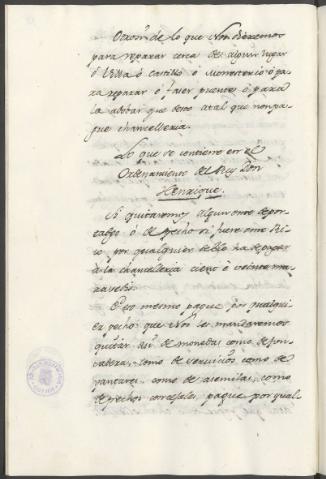 Otrosi de lo que Nos dieremos
para reparar cerca de algun lugar
ó Villa ó Castillo, ó Monesterio ó pa
ra reparar ó facer puente, ó para
la adobar que deste atal que non pa-
gue chancelleria.
Lo que se contiene en el
Ordenamiento del Rey Don
Henrique.
Si quitaremos algun ome de por-
tadgo ó de pecho si fuere ome Ri-
co por qualquier dello ha de pagar
à la chancelleria ciento è veinte ma-
ravedis.
Esso mesmo pague por qualqui-
er pecho que Nos le mandaremos
quitar asi de monedas como de fon-
sadera, como de servicios como de
yantares, como de acemilas, como
de pechos concejales, pague por qual-